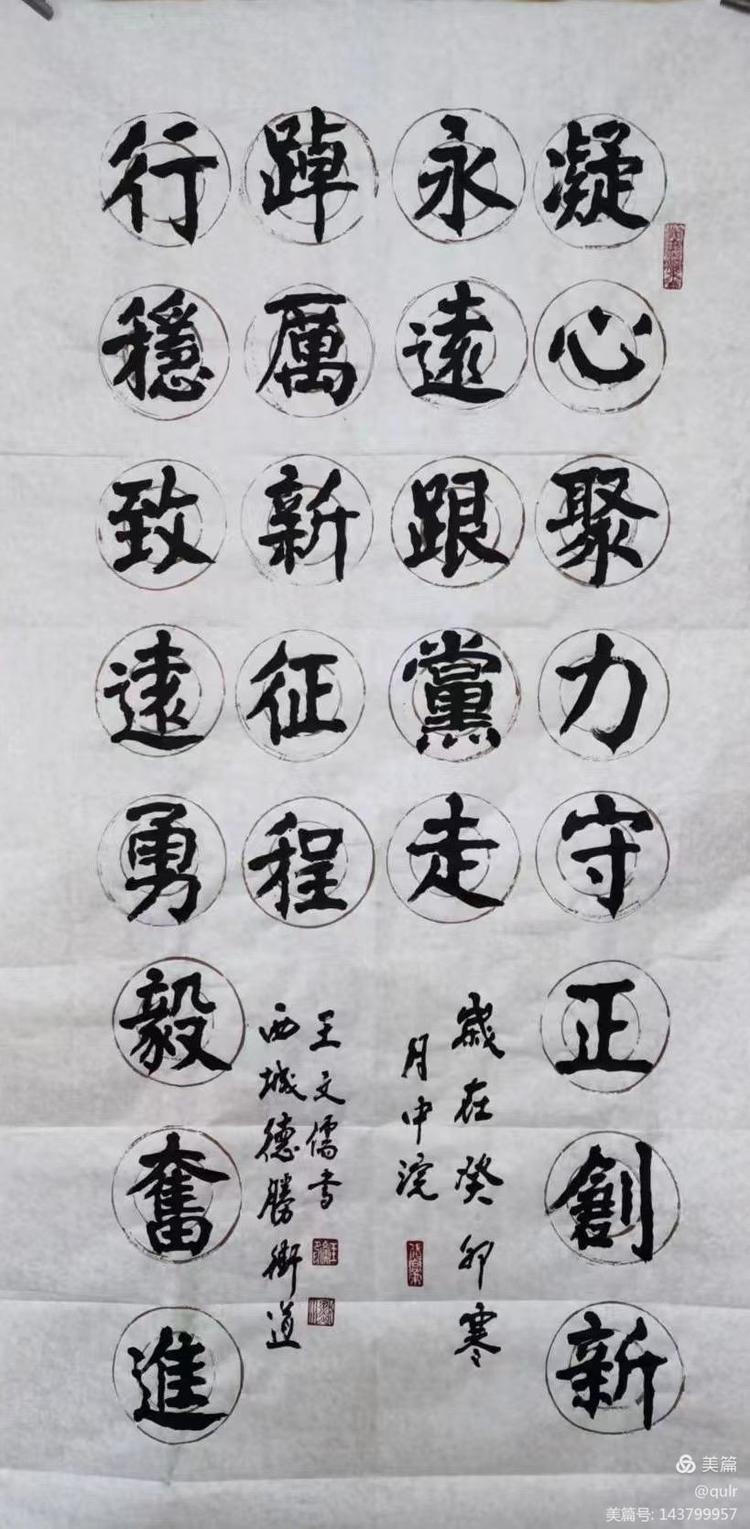 凝心聚力守正創新
永遠跟黨走
歲在癸卯寒
月中浣
踔厲新征程
王文儒书
西城德勝街道
行穩致遠勇毅奮進
美篇
@qulr
美篇号: 143799957